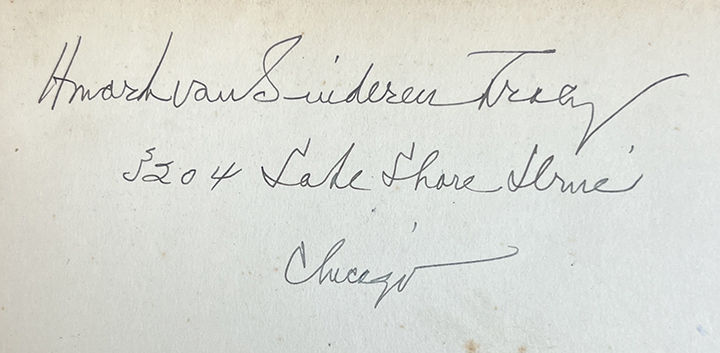 Howard van Sinderen Tracy
3204 Lake Shore Drive
Chicago